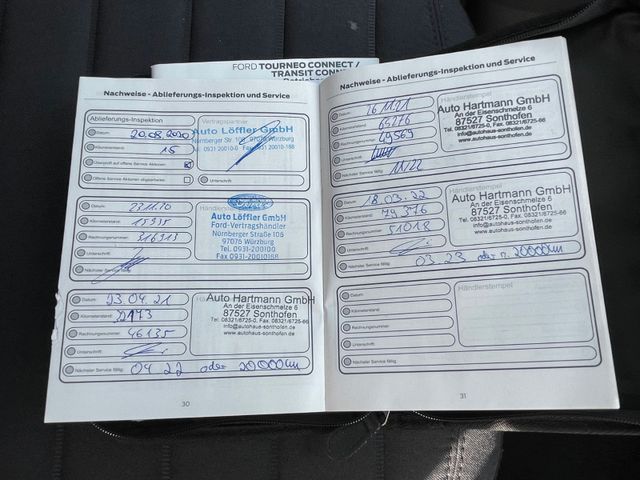 FORD TOURNEO CONNECT /
TRANSIT CONN
Nachweise - Ablieferungs-Inspektion und Service
Ablieferungs-Inspektion
Datum: 20.08.2020
Kilometerstand: 15
Überprüft auf offene Service Aktionen:
Offene Service Aktionen abgearbeitet:
Vertragspartner
Auto Löffler GmbH
Nürnberger Str.
Unterschrift:
Datum:
Kilometerstand: 15935
Rechnungsnummer: 316313
Unterschrift:
Nächster Service fällig:
Ford
Auto Löffler GmbH
Ford-Vertragshändler
Nürnberger Straße 106
97076 Würzburg
Tel. 0931-200100
Fax 0931-20010168
Datum: 23.04.21
Kilometerstand:
Rechnungsnummer: 46135
Unterschrift:
Nächster Service fällig: 04 22 oder 20000km
Auto Hartmann GmbH
An der Eisenschmelze 6
87527 Sonthofen
Tel. 08321/6725-0, Fax. 08321/6725-66
info@autohaus-sonthofen.de
www.autohaus-sonthofen.de
30
Nachweise - Ablieferungs-Inspektion und Service
Datum:
Kilometerstand: 65276
Rechnungsnummer: 49569
Unterschrift:
Nächster Service fällig: 11/22
Händlerstempel
Auto Hartmann GmbH
An der Eisenschmelze 6
87527 Sonthofen
Tel. 08321/6725-0, Fax. 08321/6725-66
info@autohaus-sonthofen.de
www.autohaus-sonthofen.de
Datum: 18.03.22
Kilometerstand: 79376
Rechnungsnummer: 51018
Unterschrift:
Nächster Service fällig: 03.23 oder n. 20000km
Händlerstempel
Auto Hartmann GmbH
An der Eisenschmelze 6
87527 Sonthofen
Tel. 08321/6725-0, Fax. 08321/6725-66
info@autohaus-sonthofen.de
www.autohaus-sonthofen.de
Datum:
Kilometerstand:
Rechnungsnummer:
Unterschrift:
Nächster Service fällig:
Händlerstempel
31